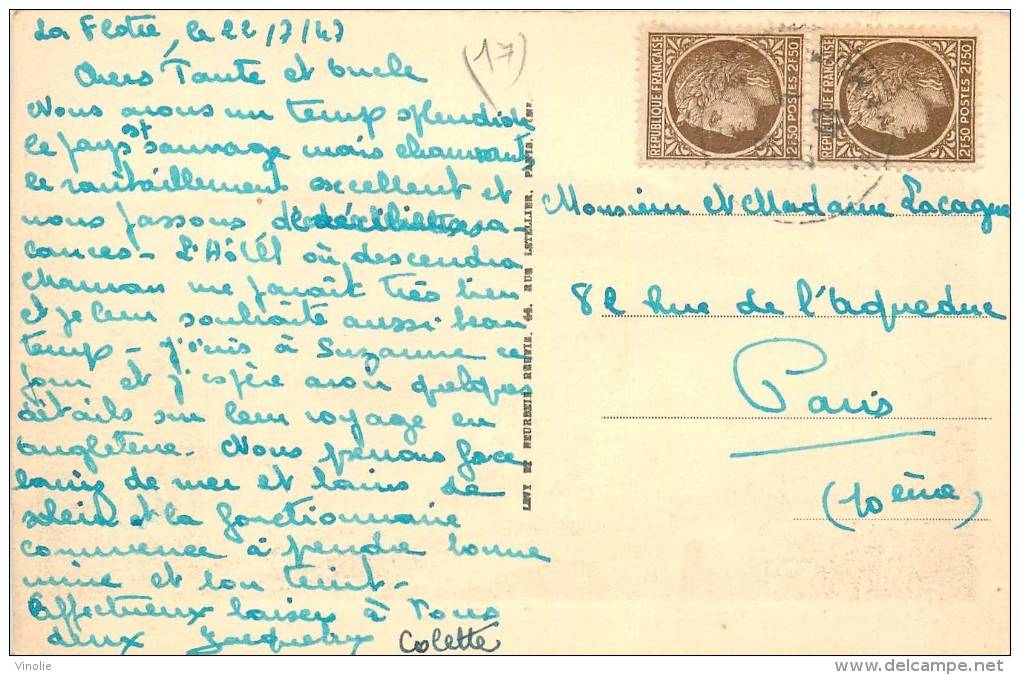 La Flotte, le 22/7/47
Chers Tante et Oncle
Nous avons un temps splendide
le pays est sauvage mais charmant
le ravitaillement excellent et
nous passons de va-
cances - L'Hôtel où descendra
Maman me paraît très bien
et je leur souhaite aussi beau
temp - J'écris à Suzanne ce
jour et j'espère avoir quelques
détails sur leur voyage en
Angleterre. Nous prenons force
bains de mer et bains de
soleil et la fonctionnaire
commence à prendre bonne
mine et bon teint -
Affectueux baisers à Tous
deux Jacqueline Colette
(17)
LEVY ET NEURDEIN REUNIS. 44. RUE LETELLIER. PARIS. IMP.
REPUBLIQUE FRANÇAISE
2F.50 POSTES 2F.50
REPUBLIQUE FRANÇAISE
2F.50 POSTES 2F.50
Monsieur et Madame Lacagne
82 Rue de l'Aqueduc
Paris
(10 ème)
Vinolie
http://www.delcampe.net